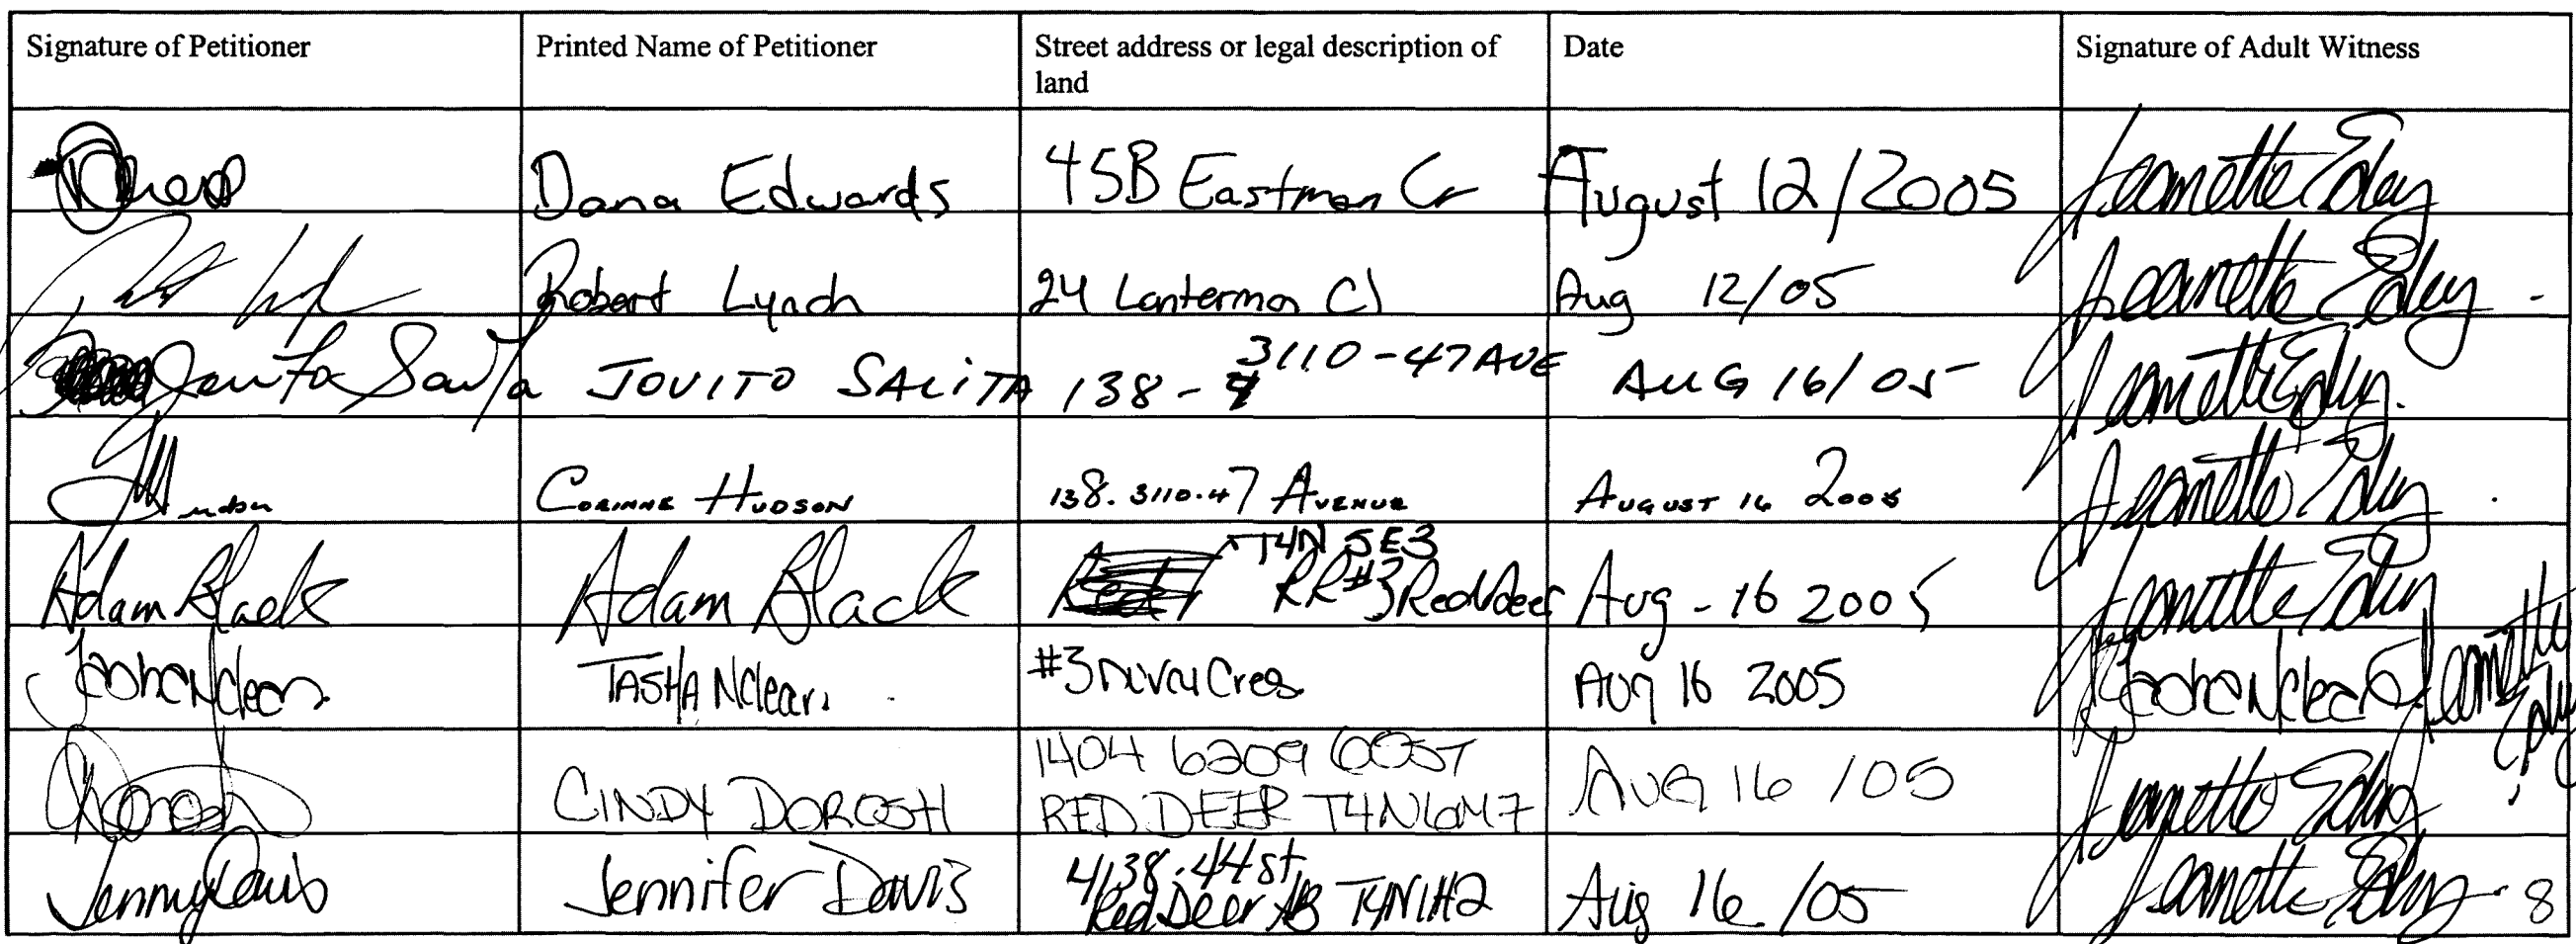 Signature of Petitioner
Printed Name of Petitioner
Street address or legal description of
land
Date
Signature of Adult Witness
Dana Edwards 45B Eastman Cr August 12/2005 Jeanette Edey
Robert Lynch 24 Lanterman Cl Aug 12/05 Jeanette Edey
JOVITO SALiTA 138 - 3110-47 AVE AUG 16/05 Jeanette Edey
Hudson CORINNE HUDSON 138. 3110.47 AVENUE AUGUST 16 2005 Jeanette Edey
Adam Black Adam Black T4N 5E3
RR#3 Red deer Aug - 16 2005 Jeanette Edey
TASHA #3 Cres Aug 16 2005 Jeanette
Edey
CINDY DOROSH 1404 6209 60 ST
RED DEER T4N6M7 AUG 16 /05 Jeanette Edey
Jenny Davis Jennifer Davis 4138-44st
Red Deer AB T4N1H2 Aug 16 /05 Jeanette Edey 8